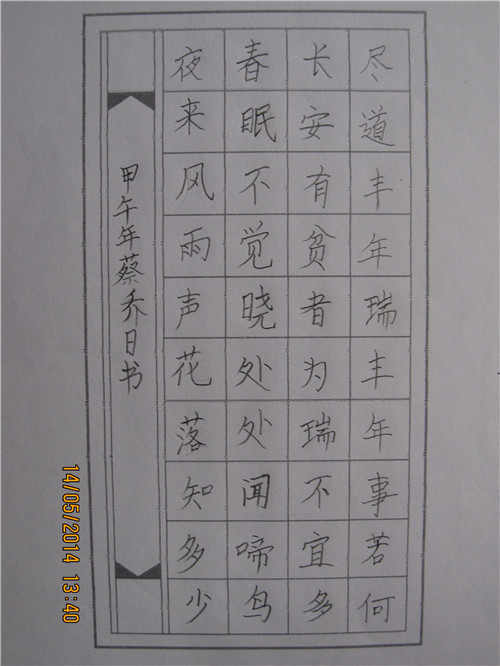 尽道丰年瑞丰年事若何
长安有贫者为瑞不宜多
春眠不觉晓处处闻啼鸟
夜来风雨声花落知多少
甲午年蔡乔日书
14/05/2014 13:40